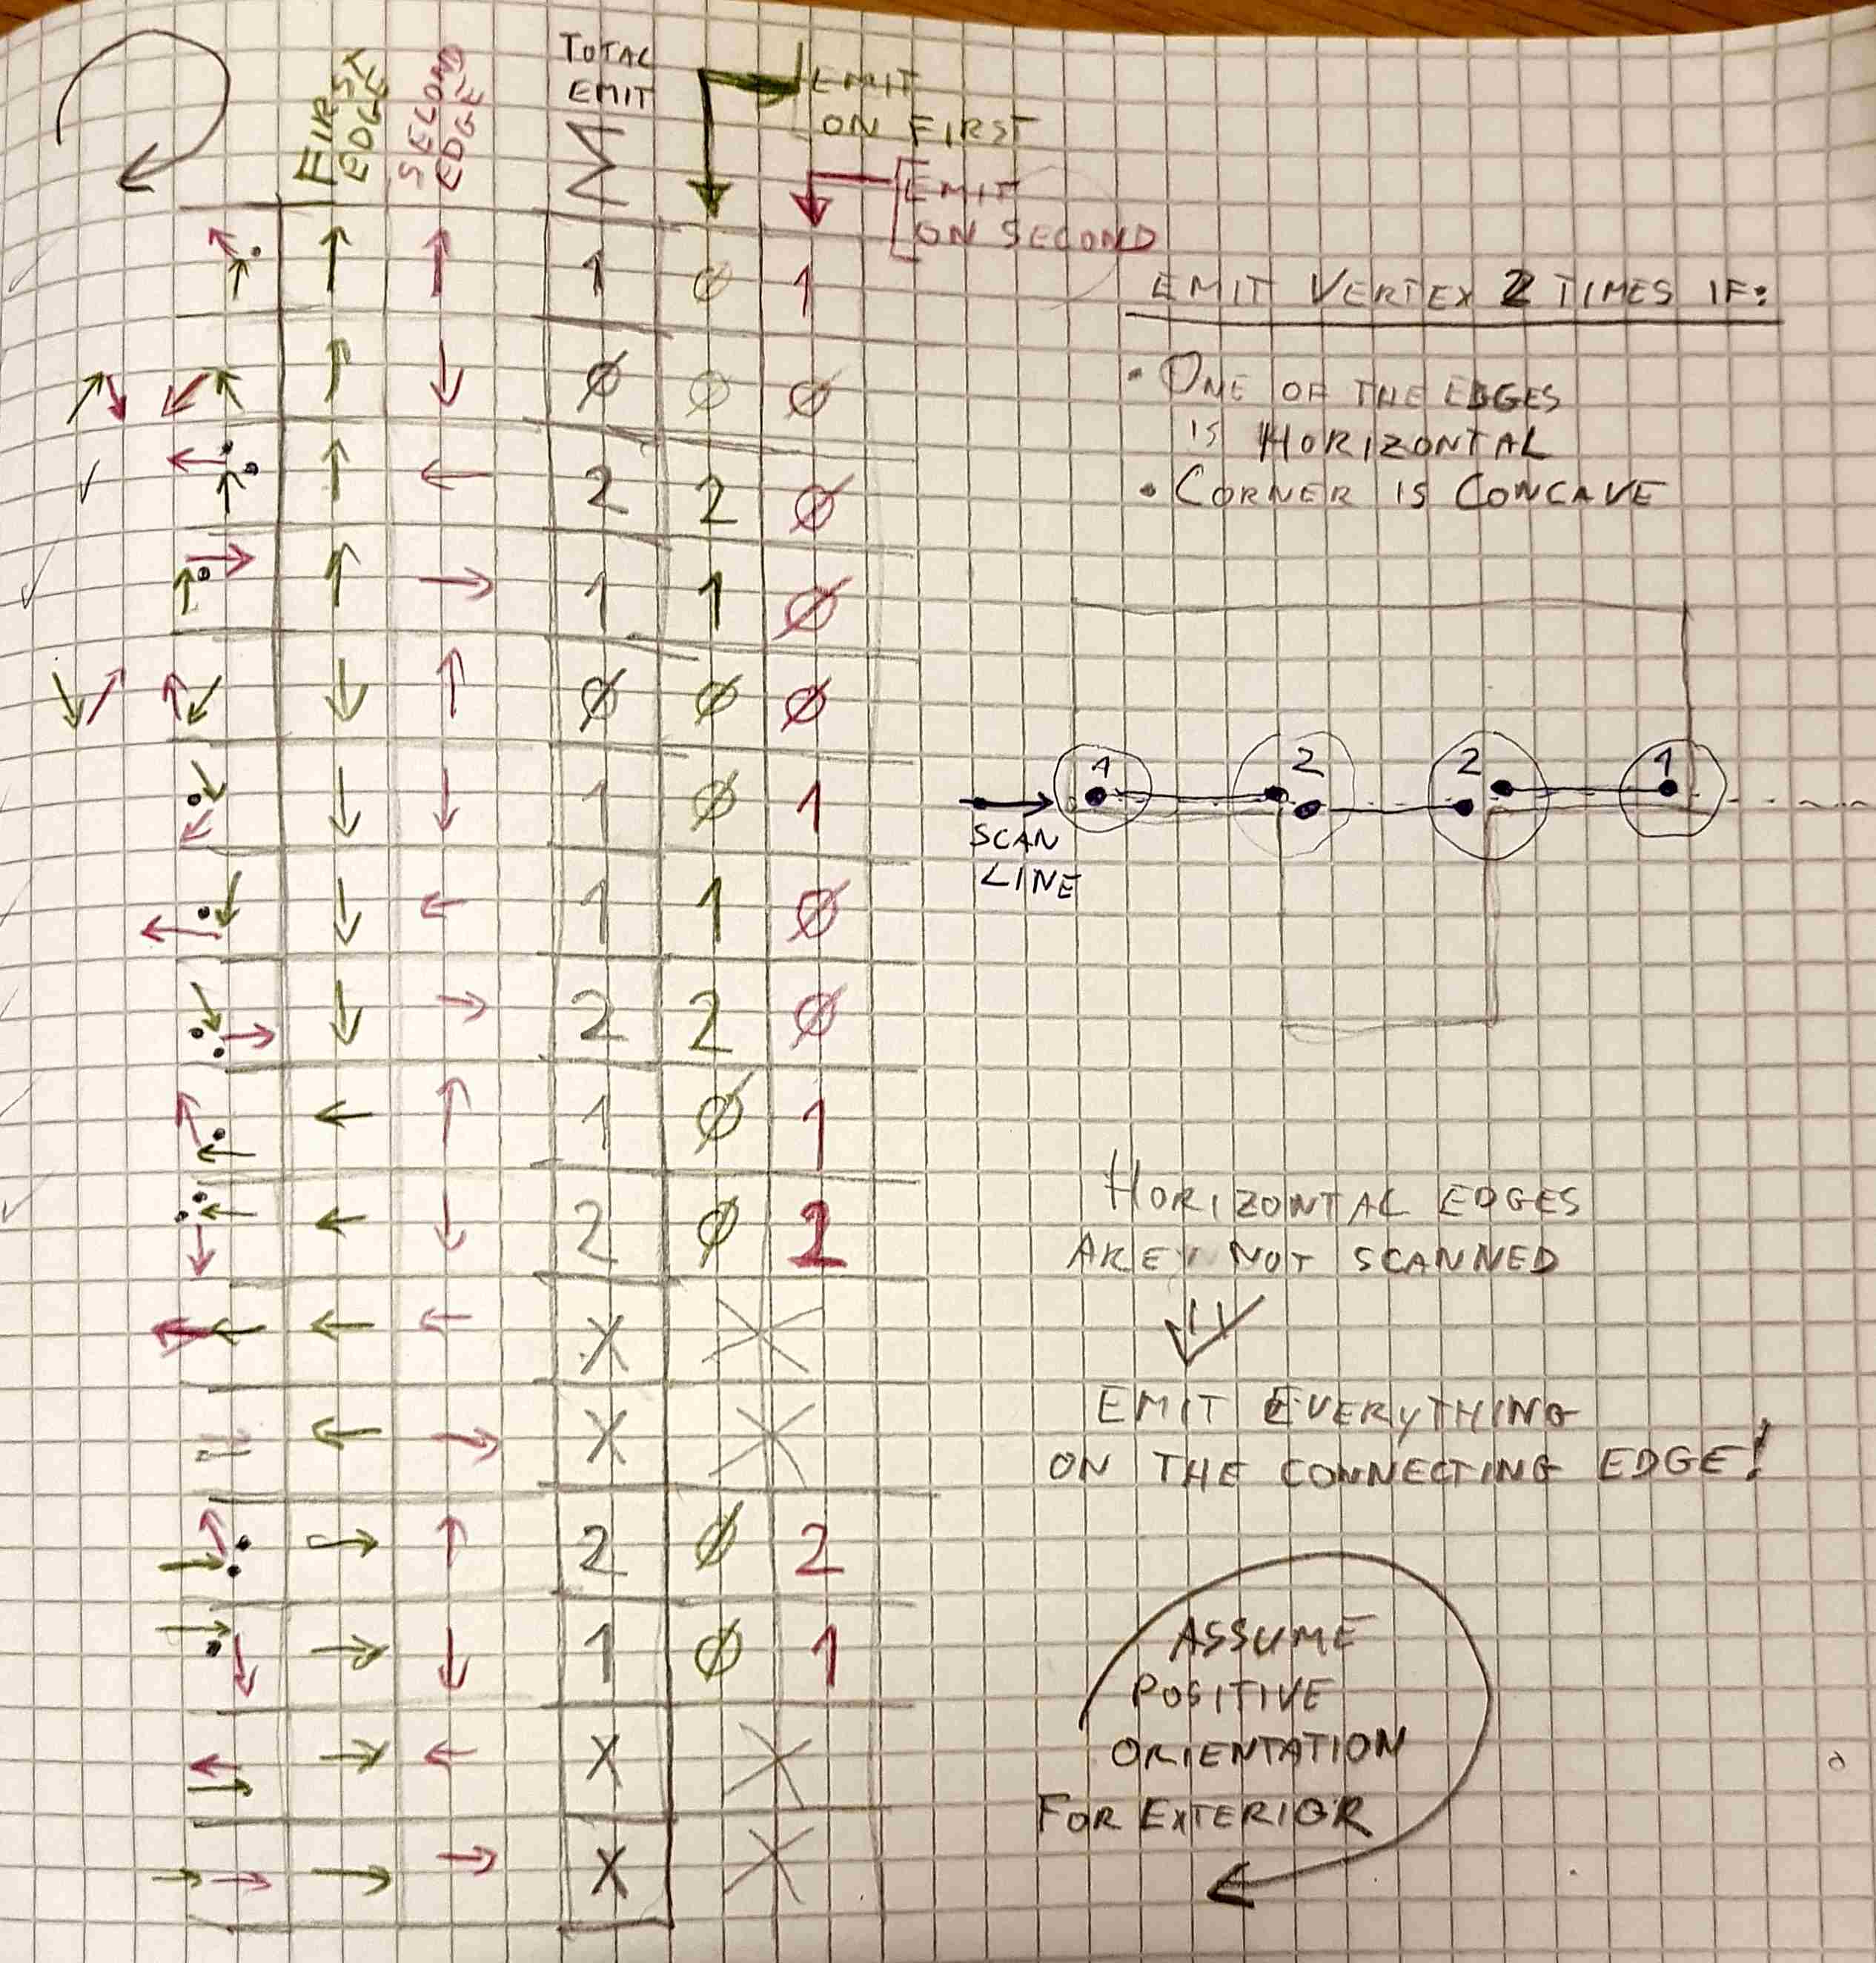 FIRST
EDGE
SECOND
EDGE
TOTAL
EMIT
Σ
EMIT
ON FIRST
EMIT
ON SECOND
↑ ↑ 1 Ø 1
↑ ↓ Ø Ø Ø
↑ ← 2 2 Ø
↑ → 1 1 Ø
↓ ↑ Ø Ø Ø
↓ ↓ 1 Ø 1
↓ ← 1 1 Ø
↓ → 2 2 Ø
← ↑ 1 Ø 1
← ↓ 2 Ø 2
← ← X X
← → X X
→ ↑ 2 Ø 2
→ ↓ 1 Ø 1
→ ← X X
→ → X X
EMIT VERTEX 2 TIMES IF:
• ONE OF THE EDGES
IS HORIZONTAL
• CORNER IS CONCAVE
1 2 2 1
SCAN
LINE
HORIZONTAL EDGES
ARE NOT SCANNED
EMIT EVERYTHING
ON THE CONNECTING EDGE!
ASSUME
POSITIVE
ORIENTATION
FOR EXTERIOR